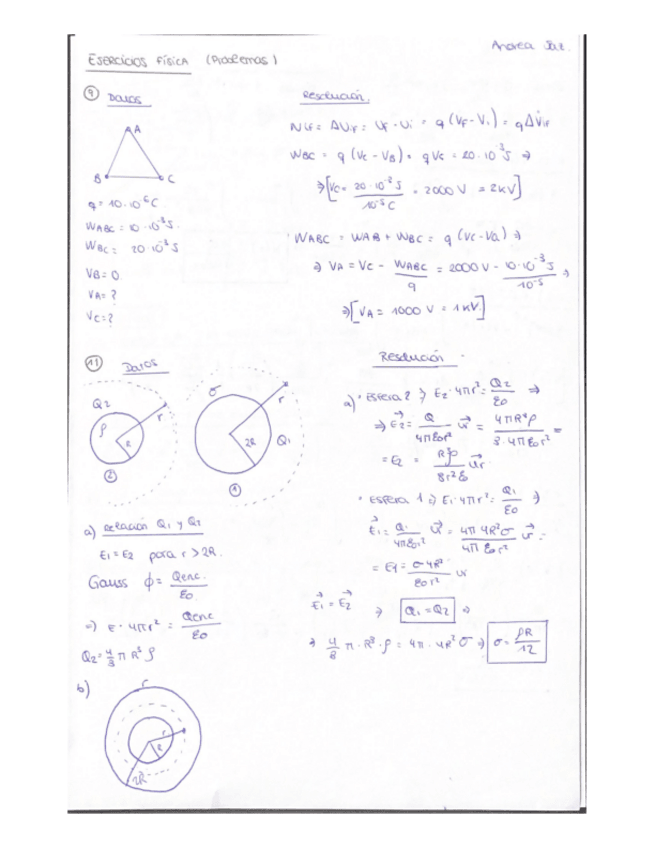 Andrea
EJERCICIOS FÍSICA (Problemas)
9 DATOS
A
B C
q = 10·10⁻⁶C
WABC = 10·10⁻³J.
WBC = 20·10⁻³J
VB = 0
VA = ?
VC = ?
Resolución.
WIF = ΔUIF = UF - Ui = q (VF - Vi) = qΔVIF
WBC = q (VC - VB) = qVC = 20·10⁻³J ⇒
⇒ [VC = 20·10⁻²J / 10⁻⁵C = 2000 V = 2KV]
WABC = WAB + WBC = q (VC - VA) ⇒
⇒ VA = VC - WABC / q = 2000 V - 10·10⁻³J / 10⁻⁵ ⇒
⇒ [VA = 1000 V = 1KV]
11 DATOS
Q2 ρ R r
2
σ 2R r Q1
1
a) Relación Q1 y Q2
E1 = E2 para r > 2R.
Gauss ϕ = Qenc. / ε0
⇒ E·4πr² = Qenc / ε0
Q2 = 4/3 π R³ ρ
b)
r
r
R
2R
Resolución
a) · ESFERA 2 ⇒ E2·4πr² = Q2 / ε0 ⇒
⇒ E2 = Q / 4πε0r² ur = 4πR³ρ / 3·4πε0r² =
= E2 = R³ρ / 3r²ε0 ur
· ESFERA 1 ⇒ E1·4πr² = Q1 / ε0 ⇒
E1 = Q1 / 4πε0r² ur = 4π 4R²σ / 4π ε0r² ur =
= E1 = σ4R² / ε0r² ur
E1 = E2 ⇒ Q1 = Q2 ⇒
⇒ 4/3 π·R³·ρ = 4π·4R²σ ⇒ σ = ρR / 12